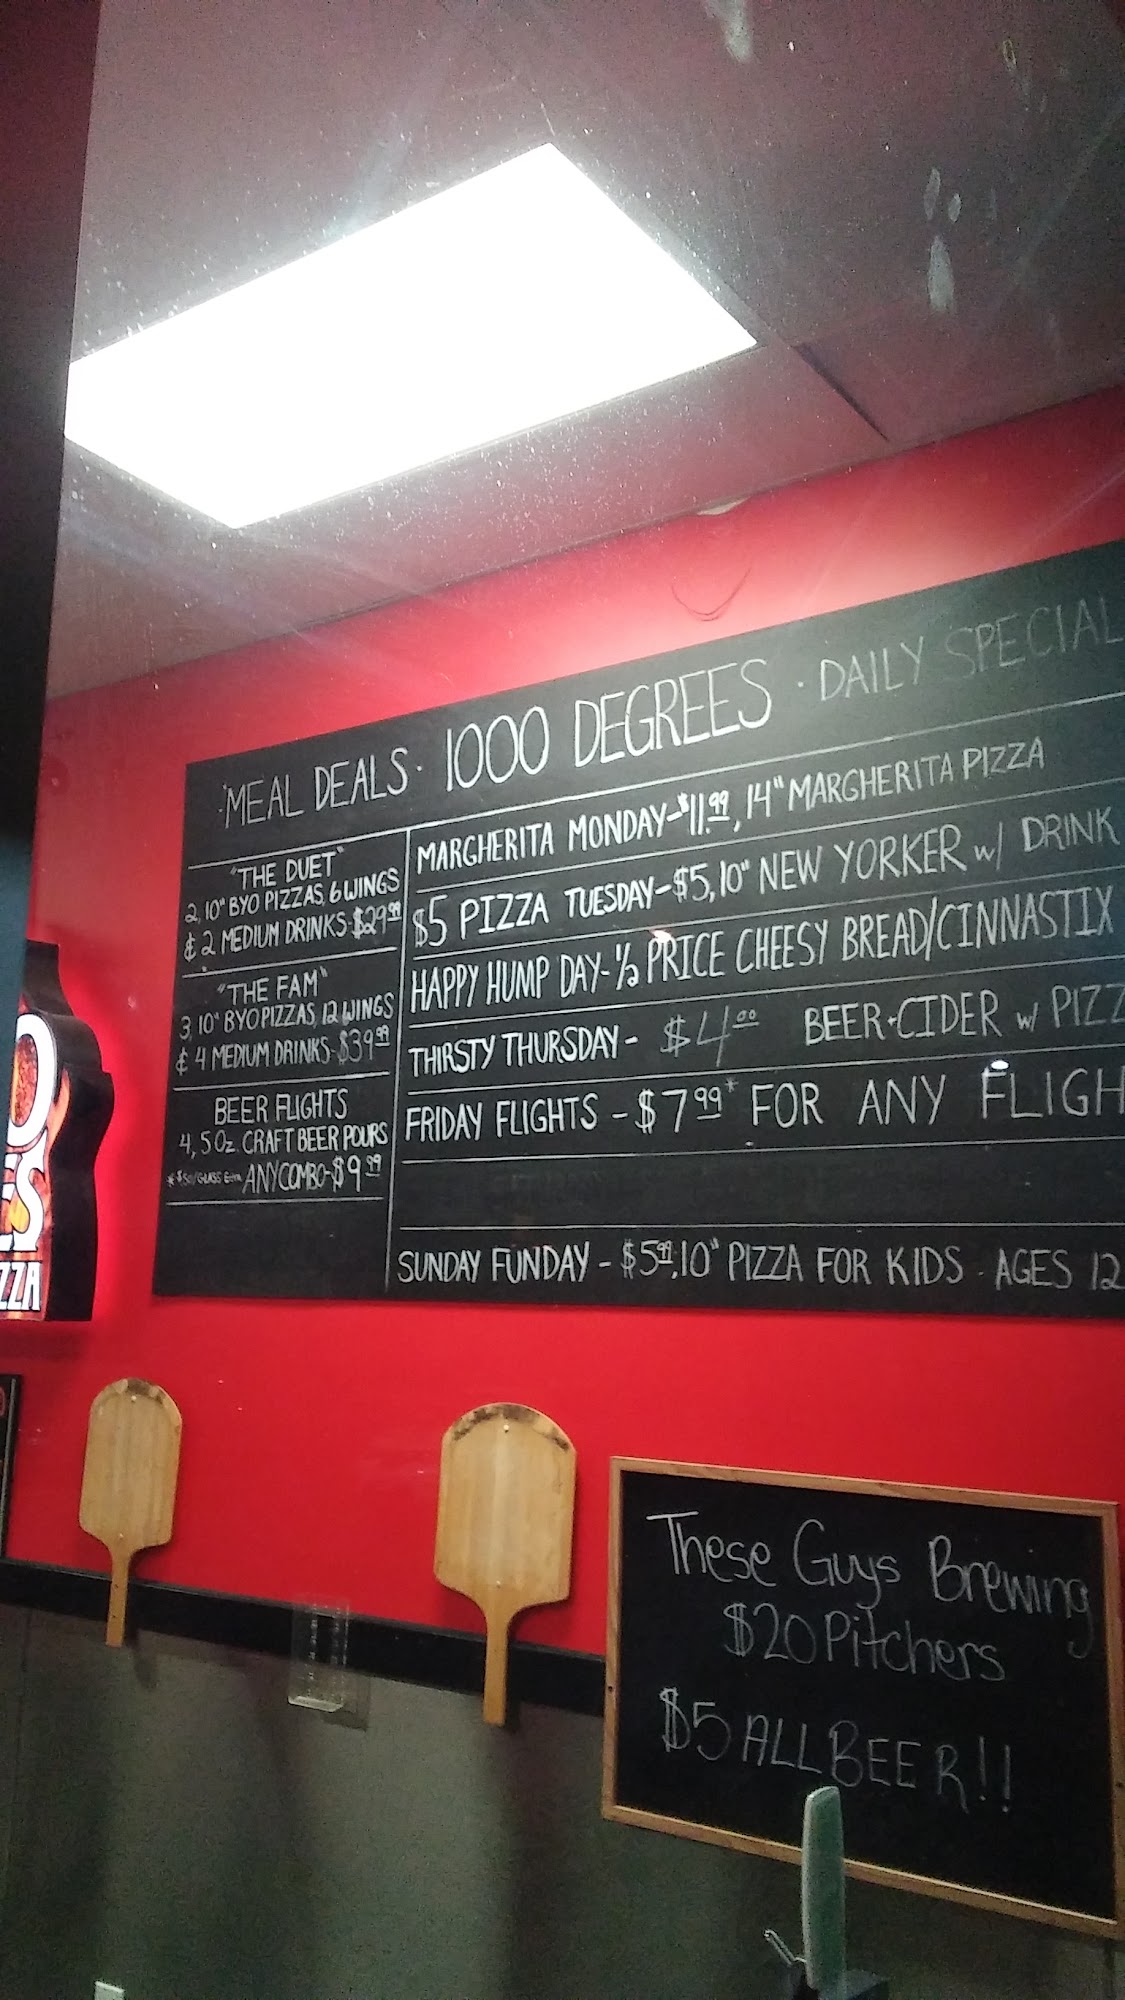 ·MEAL DEALS· 1000 DEGREES · DAILY SPECIAL
"THE DUET"
2, 10" BYO PIZZAS, 6 WINGS
& 2 MEDIUM DRINKS-$29.99
"THE FAM"
3, 10" BYO PIZZAS, 12 WINGS
& 4 MEDIUM DRINKS-$39.99
BEER FLIGHTS
4, 5 Oz. CRAFT BEER POURS
ANY COMBO-$9.99
MARGHERITA MONDAY-$11.99, 14" MARGHERITA PIZZA
$5 PIZZA TUESDAY-$5, 10" NEW YORKER w/ DRINK
HAPPY HUMP DAY-½ PRICE CHEESY BREAD/CINNASTIX
THIRSTY THURSDAY- $4.00 BEER+CIDER w/ PIZZ
FRIDAY FLIGHTS - $7.99* FOR ANY FLIGH
SUNDAY FUNDAY - $5.99, 10" PIZZA FOR KIDS - AGES 12
O
ES
ZZA
These Guys Brewing
$20 Pitchers
$5 ALL BEER!!